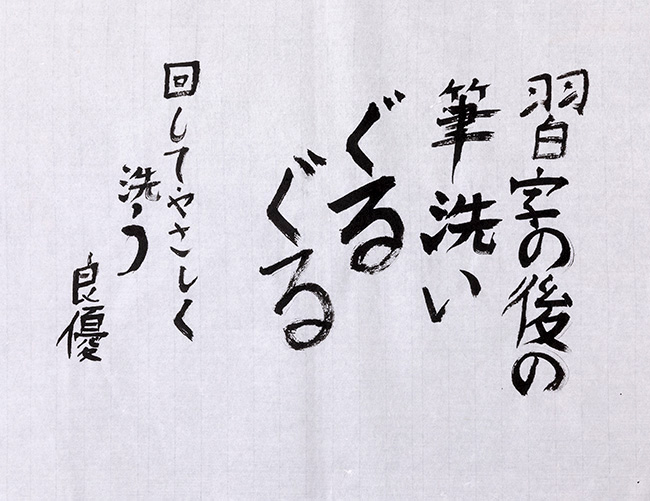 習字の後の
筆洗い
ぐる
ぐる
回してやさしく
洗う
良優